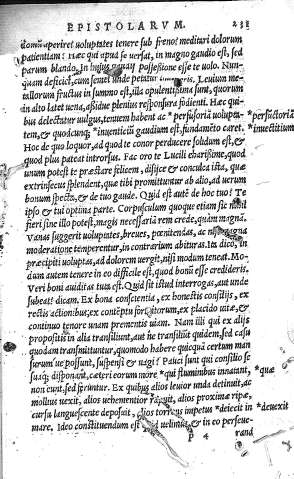 EPISTOLARVM. 231
domũ aperiret uoluptates tenere sub freno? meditari dolorum
patientiam: Hæc qui apud se uersat, in magno gaudio est, sed
parum blando. In huius gaudij possessione esse te uolo. Nun-
quam deficiet, cum semel unde petatur inueneris. Leuium me-
tallorum fructus in summo est, illa opulentissima sunt, quorum
in alto latet uena, assidue plenius responsura fodienti. Hæc qui-
bus delectatur uulgus, tenuem habent ac *persusoriã uolupta- *persuctoriã
tem, & quodcunq; *inuenticiũ gaudium est, fundamẽto caret. *inuectitium
Hoc de quo loquor, ad quod te conor perducere solidum est, &
quod plus pateat introrsus. Fac oro te Lucili charissime, quod
unum potest te præstare felicem, disijce & conculca ista, quæ
extrinsecus splendent, quæ tibi promittuntur ab alio, ad uerum
bonum specta, & de tuo gaude. Quid est autẽ de hoc tuo? Te
ipso & tui optima parte. Corpusculum quoque etiam sic nihil
fieri sine illo potest, magis necessariã rem crede, quàm magnã.
Vanas suggerit uoluptates, breues, pœnitendas, ac nisi magna
moderatione temperentur, in contrarium abituras. Ita dico, in
præcipiti uoluptas, ad dolorem uergit, nisi modum teneat. Mo-
dum autem tenere in eo difficile est, quod bonũ esse credideris.
Veri boni auiditas tuta est. Quid sit istud interrogas, aut unde
subeat? dicam. Ex bona conscientia, ex honestis consilijs, ex
rectis actionibus, ex contẽptu fortuitorum, ex placido uitæ, &
continuo tenore unam prementis uiam. Nam illi qui ex alijs
propositis in alia transiliunt, aut ne transiliũt quidem, sed casu
quodam transmittuntur, quomodo habere quicquã certum man
surum ue possunt, suspensi & uagi? Pauci sunt qui consilio se
suaq; disponant, cæteri eorum more *qui fluminibus innatant, *quæ
non eunt, sed feruntur. Ex quibus alios leuior unda detinuit, ac
mollius uexit, alios uehementior rapuit, alios proxime ripæ,
cursu languescente deposuit, alios torrens impetus *deiecit in *deuexit
mare. Ideo constituendum est quid uelimus, & in eo perseue-
P 4 rand